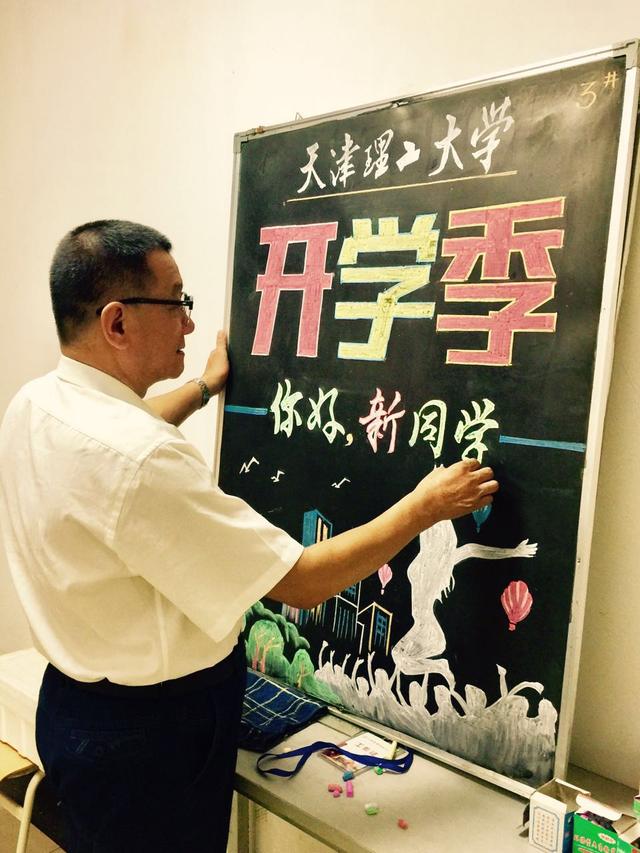 3#
天津理工大学
开学季
你好，新同学